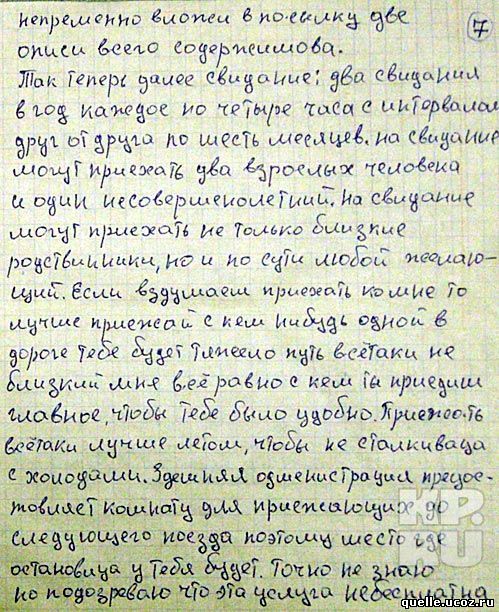 непременно вложи в посылку две
7
описи всего содержимова.
Так теперь далее свидание: два свидания
в год каждое по четыре часа с интервалам
друг от друга по шесть месяцев. на свидание
могут приехать два взрослых человека
и один несовершенолетний. на свидание
могут приехать не только близкие
родствинники, но и по сути любой желаю-
щий. Если вздумаем приехать ко мне то
лучше приежай с кем нибудь одной в
дороге тебе будет тяжело путь всётаки не
близкий мне всё равно с кем ты приедиш
главное, чтобы тебе было удобно. Приежать
всётаки лучше летом, чтобы не сталкиваца
с холодами. Здешняя админестрация предос-
товляет комнату для приежающих до
следующего поезда поэтому место где
остановица у тебя будет. Точно не знаю
но подозреваю что эта услуга небесплатна
KP.RU
quelle.ucoz.ru